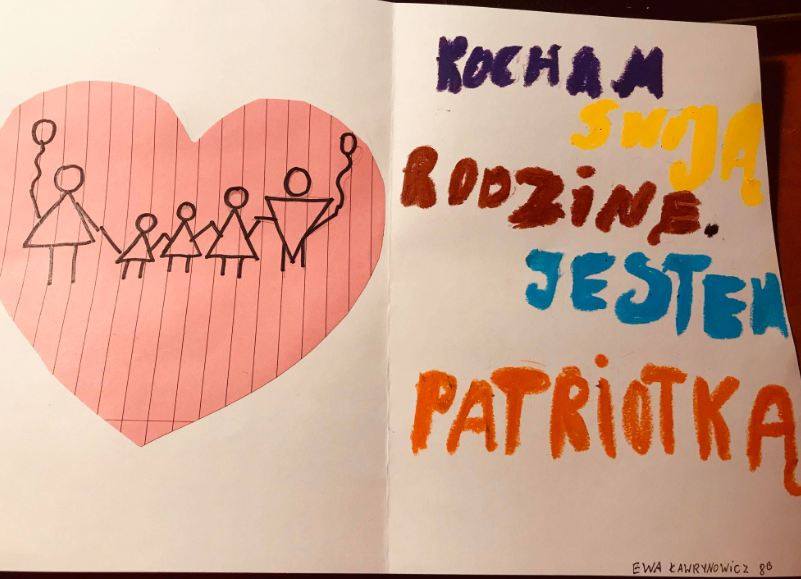 KOCHAM
SWOJĄ
RODZINĘ.
JESTEM
PATRIOTKĄ
EWA ŁAWRYNOWICZ 8B